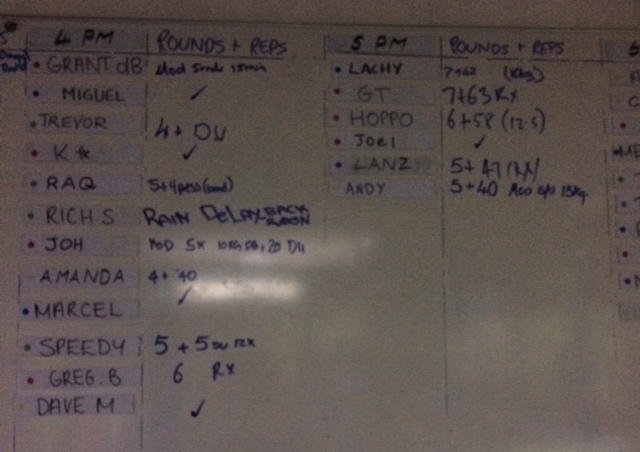 4 PM ROUNDS + REPS
GRANT dB Mod 5rnds 15min
MIGUEL ✓
TREVOR 4 + DU
K ☆ ✓
RAQ 5+4
RICH S RAIN DELAY BACK
JOH MOD 5x 10KG DB, 20
AMANDA 4 + 40
MARCEL ✓
SPEEDY 5 + 5 DU RX
GREG. B 6 RX
DAVE M ✓
5 PM ROUNDS + REPS
LACHY 7+62 (10kg)
GT 7+63 RX
HOPPO 6+58 (12.5)
JOEL ✓
LANZ 5+47 (RX)
ANDY 5+40 15kg